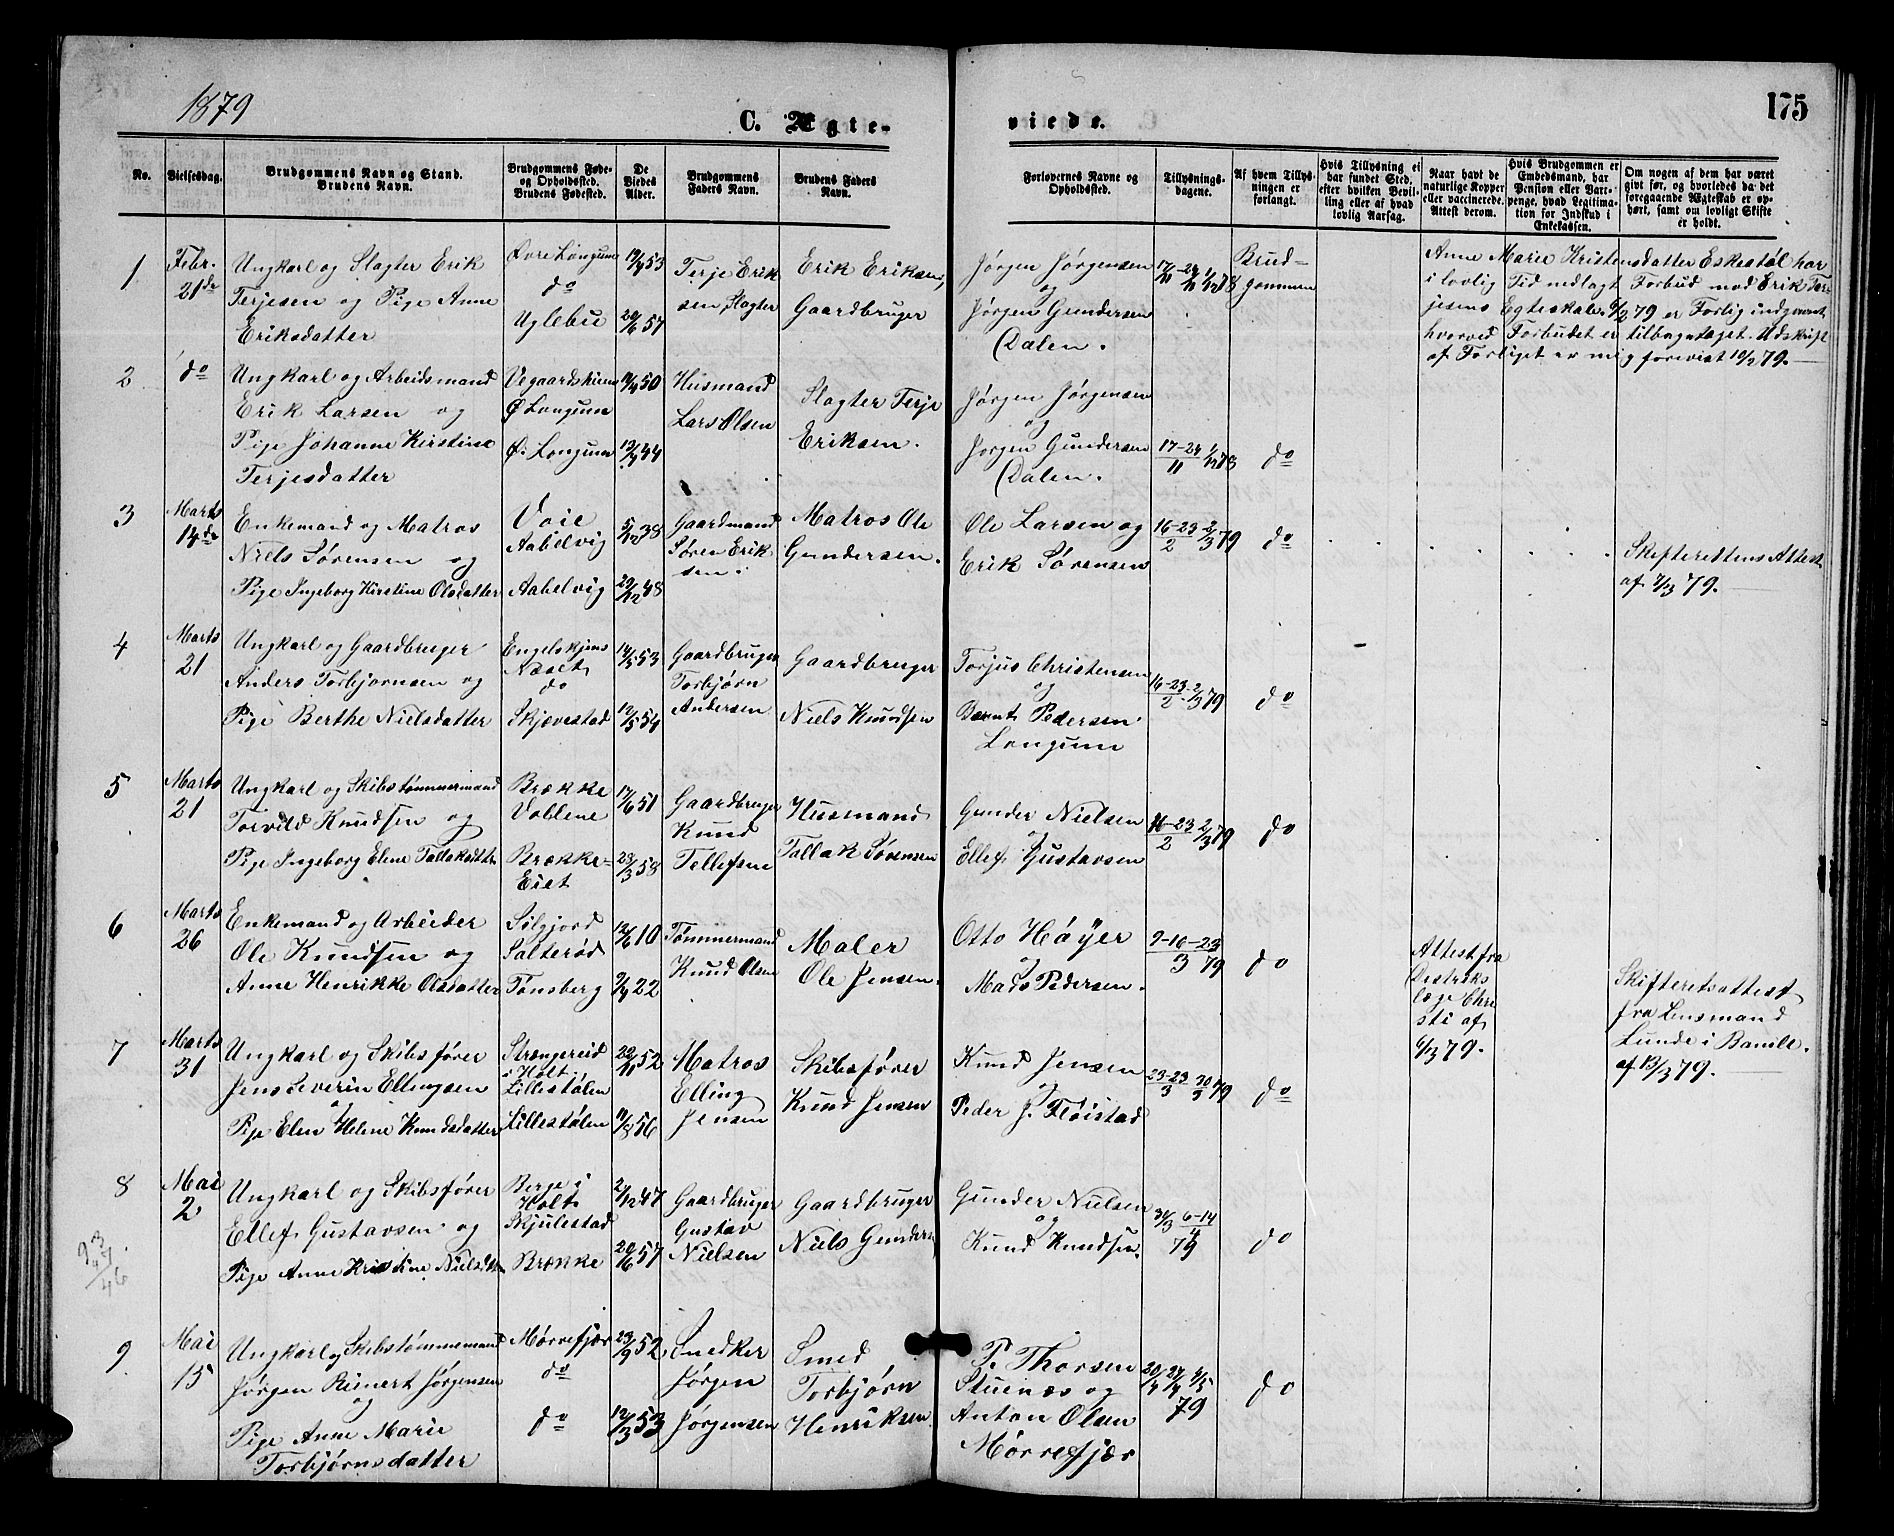 1879
C. Ægte-
viede.
175
No.
Vielsesdag.
Brudgommens Navn og Stand.
Brudens Navn.
Brudgommens Føde-
og Opholdssted.
Brudens Fødested.
De
Viedes
Alder.
Brudgommens
Faders Navn.
Brudens Faders
Navn.
Forlovernes Navne og
Opholdssted.
Tillysnings-
dagene.
Af hvem Tillys-
ningen er
forlangt.
Hvis Tillysning ei
har fundet Sted,
efter hvilken Bevil-
ling eller af hvad
lovlig Aarsag.
Naar havt de
naturlige Kopper
eller vaccinerede.
Attest derom.
Hvis Brudgommen er
Embedsmand, har
Pension eller Vart-
penge, hvad Legitima-
tion for Indskud i
Enkekassen.
Om nogen af dem har været
givt før, og hvorledes da det
foregaaende Ægteskab er op-
hørt, samt om lovligt Skifte
er holdt.
1
Febr.
21de
Ungkarl og Slagter Erik
Terjesen og Pige Anne
Eriksdatter
Øvre Longum
do
Uglebu
53
20/6 57
Terje Erik
sen, Slagter
Erik Eriksen,
Gaardbruger
Jørgen Jørgensen
og
Jørgen Gundersen
Dalen.
17/11-24/11 1/12 78
Brud-
gommen
Anne Marie Kristensdatter Eskestøl har
i lovlig Tid nedlagt Forbud mod Erik Ter
jesens Egteskab. 6/2 79 er Forlig indgaaet,
hvorved Forbudet er tilbagetaget. Udskrift
af Forliget er mig forevist 10/2 79.
2
do
Ungkarl og Arbeidsmand
Erik Larsen og
Pige Johanne Kirstine
Terjesdatter
Vegaardsheien
Ø Longum
Ø. Longum
50
44
Husmand
Lars Olsen
Slagter Terje
Eriksen.
Jørgen Jørgensen
og
Jørgen Gundersen
Dalen.
17-24/11 1/12 78
do
3
Marts
14de
Enkemand og Matros
Niels Sørensen og
Pige Ingeborg Kirstine Olsdatter
Voie
Aabelvig
Aabelvig
5/12 38
29/12 48
Gaardmand
Søren Erik
sen.
Matros Ole
Gundersen.
Ole Larsen og
Erik Sørensen
16-23/2 2/3 79
do
Skifterettens Attest
af 7/3 79.
4
Marts
21
Ungkarl og Gaardbruger
Anders Torbjørnsen og
Pige Berthe Nielsdatter
Engelskjøns
Næset
do
Skjævestad
14/5 53
12/5 54
Gaardbruger
Torbjørn
Andersen
Gaardbruger
Niels Knudsen
Torjus Christensen
og
Bernt Pedersen
Longum
16-23/2 2/3 79
do
5
Marts
21
Ungkarl og Skibstømmermand
Torvild Knudsen og
Pige Ingeborg Elene Tallaksdtter
Brække
Voblene
Brække-
Eiet
17/6 51
23/3 58
Gaardbruger
Knud
Tellefsen
Husmand
Tallak Sørensen
Gunder Nielsen
og
Ellef Gustavsen
16-23/2 2/3 79
do
6
Marts
26
Enkemand og Arbeider
Ole Knudsen og
Anne Henrikke Olsdatter
Silgjord
Salterød
Tønsberg
12/6 10
2/9 22
Tømmermand
Knud Olsen
Maler
Ole Jensen.
Otto Høyer
og
Mads Pedersen.
9-16-23/3 79
do
Attest fra
Distrikts
læge Chri
sti af
6/3 79.
Skifteretsattest
fra Lensmand
Lunde i Bamle.
af 13/3 79.
7
Marts
31
Ungkarl og Skibsfører
Jens Severin Ellingsen
og
Pige Elen Helene Knudsdatter
Strængereid
i Holt
Lillestølen
Lillestølen
22/11 52
11/8 56
Matros
Elling
Jensen
Skibsfører
Knud Jensen
Knud Jensen
og
Peder J. Fløistad
23-23/3 30/3 79
do
8
Mai
2
Ungkarl og Skibsfører
Ellef Gustavsen og
Pige Anne Kristine Nielsdtr
Berge i
Holt
Skjulestad
Brække
2/12 47
20/6 57
Gaardbruger
Gustav
Nielsen
Gaardbruger
Niels Gunders
Gunder Nielsen
og
Knud Knudsen
31/3 6-14/4
79
do
9
Mai
15
Ungkarl og Skibstømmemand
Jørgen Reinert Jørgensen
og
Pige Anne Marie
Torbjørnsdatter
Mørrefjær
do
do
23/9 52
12/3 53
Snedker
Jørgen
Jørgensen
Smed
Torbjørn
Henriksen
P. Thorsen
Stuenæs og
Anton Olsen
Mørrefjær
20/4 27/4 4/5
79
do